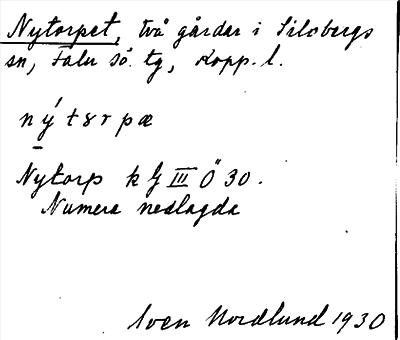 Nytorpet, två gårdar i Silvbergs
sn, Falu sö. tg, Kopp. l.
nýtɤrpæ
Nytorp k bl III Ö 30.
Numera nedlagda
Sven Nordlund 1930